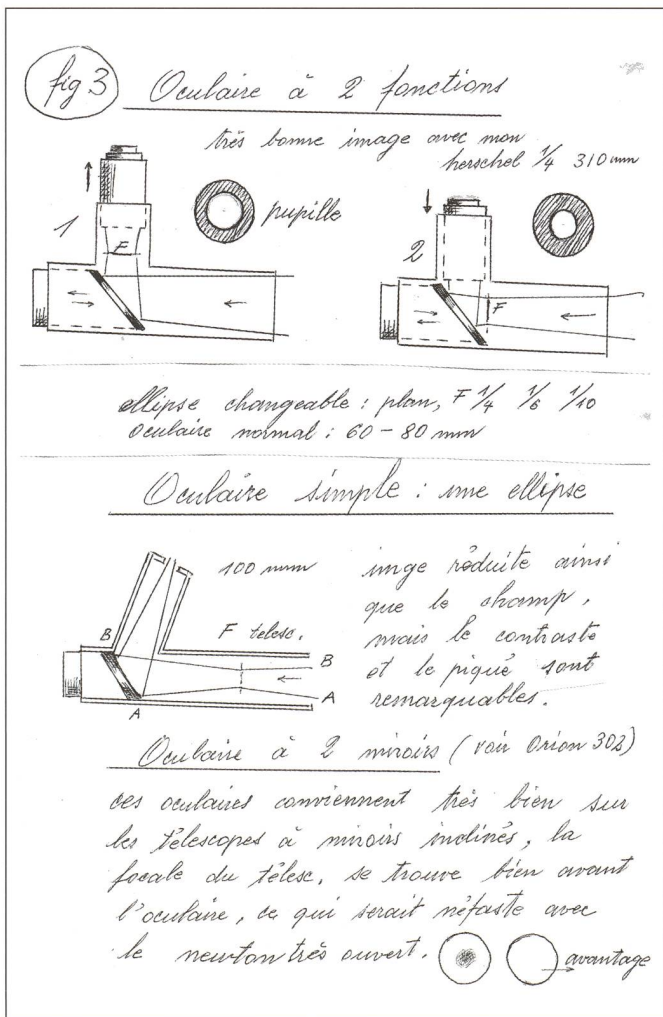 fig 3
Oculaire à 2 fonctions
très bonne image avec mon
herschel 1/4 310 mm
1
pupille
F
2
F
ellipse changeable : plan, F 1/4 1/6 1/10
oculaire normal : 60 - 80 mm
Oculaire simple : une ellipse
100 mm
F télesc.
B
B
A
A
imge réduite ainsi
que le champ,
mais le contraste
et le piqué sont
remarquables.
Oculaire à 2 miroirs (voir Orion 302)
ces oculaires conviennent très bien sur
les télescopes à miroirs inclinés, la
focale du télesc. se trouve bien avant
l'oculaire, ce qui serait néfaste avec
le newton très ouvert.
avantage